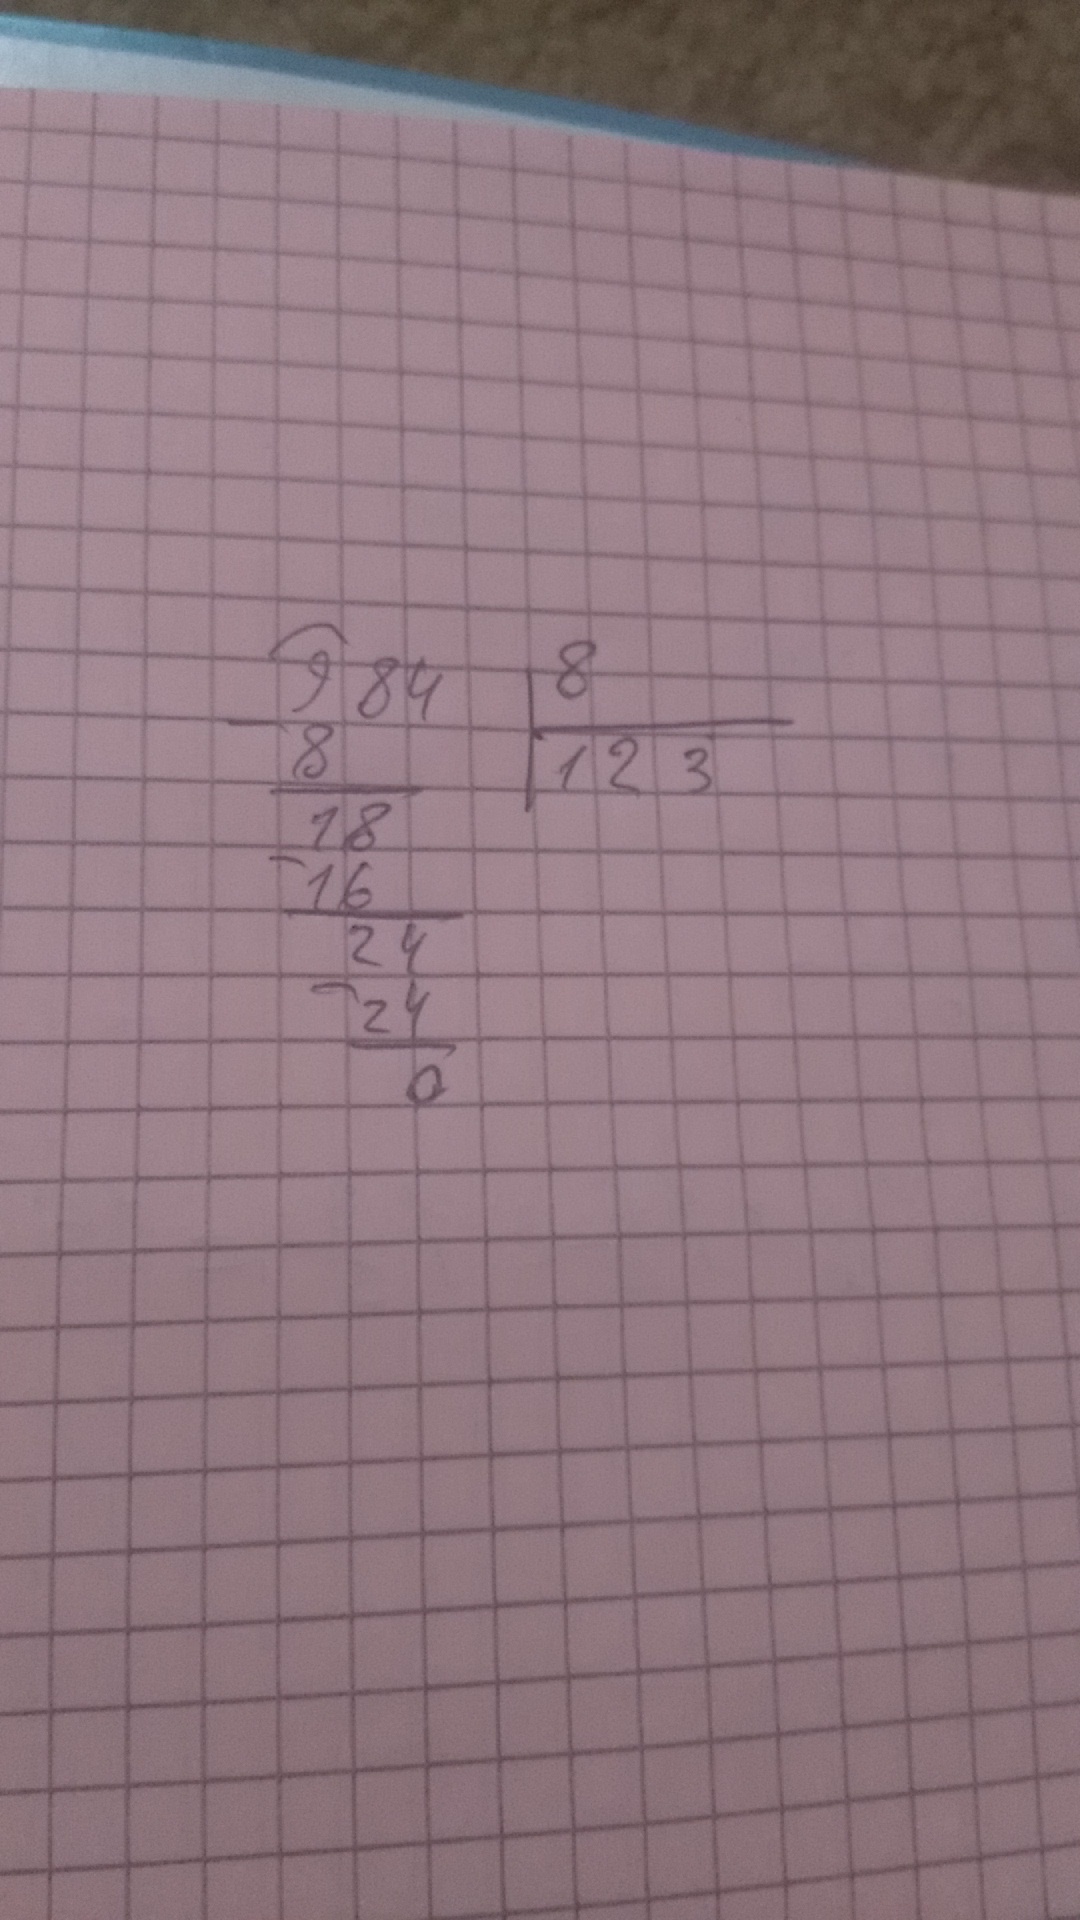 984 8
- 8 123
18
- 16
24
- 24
0